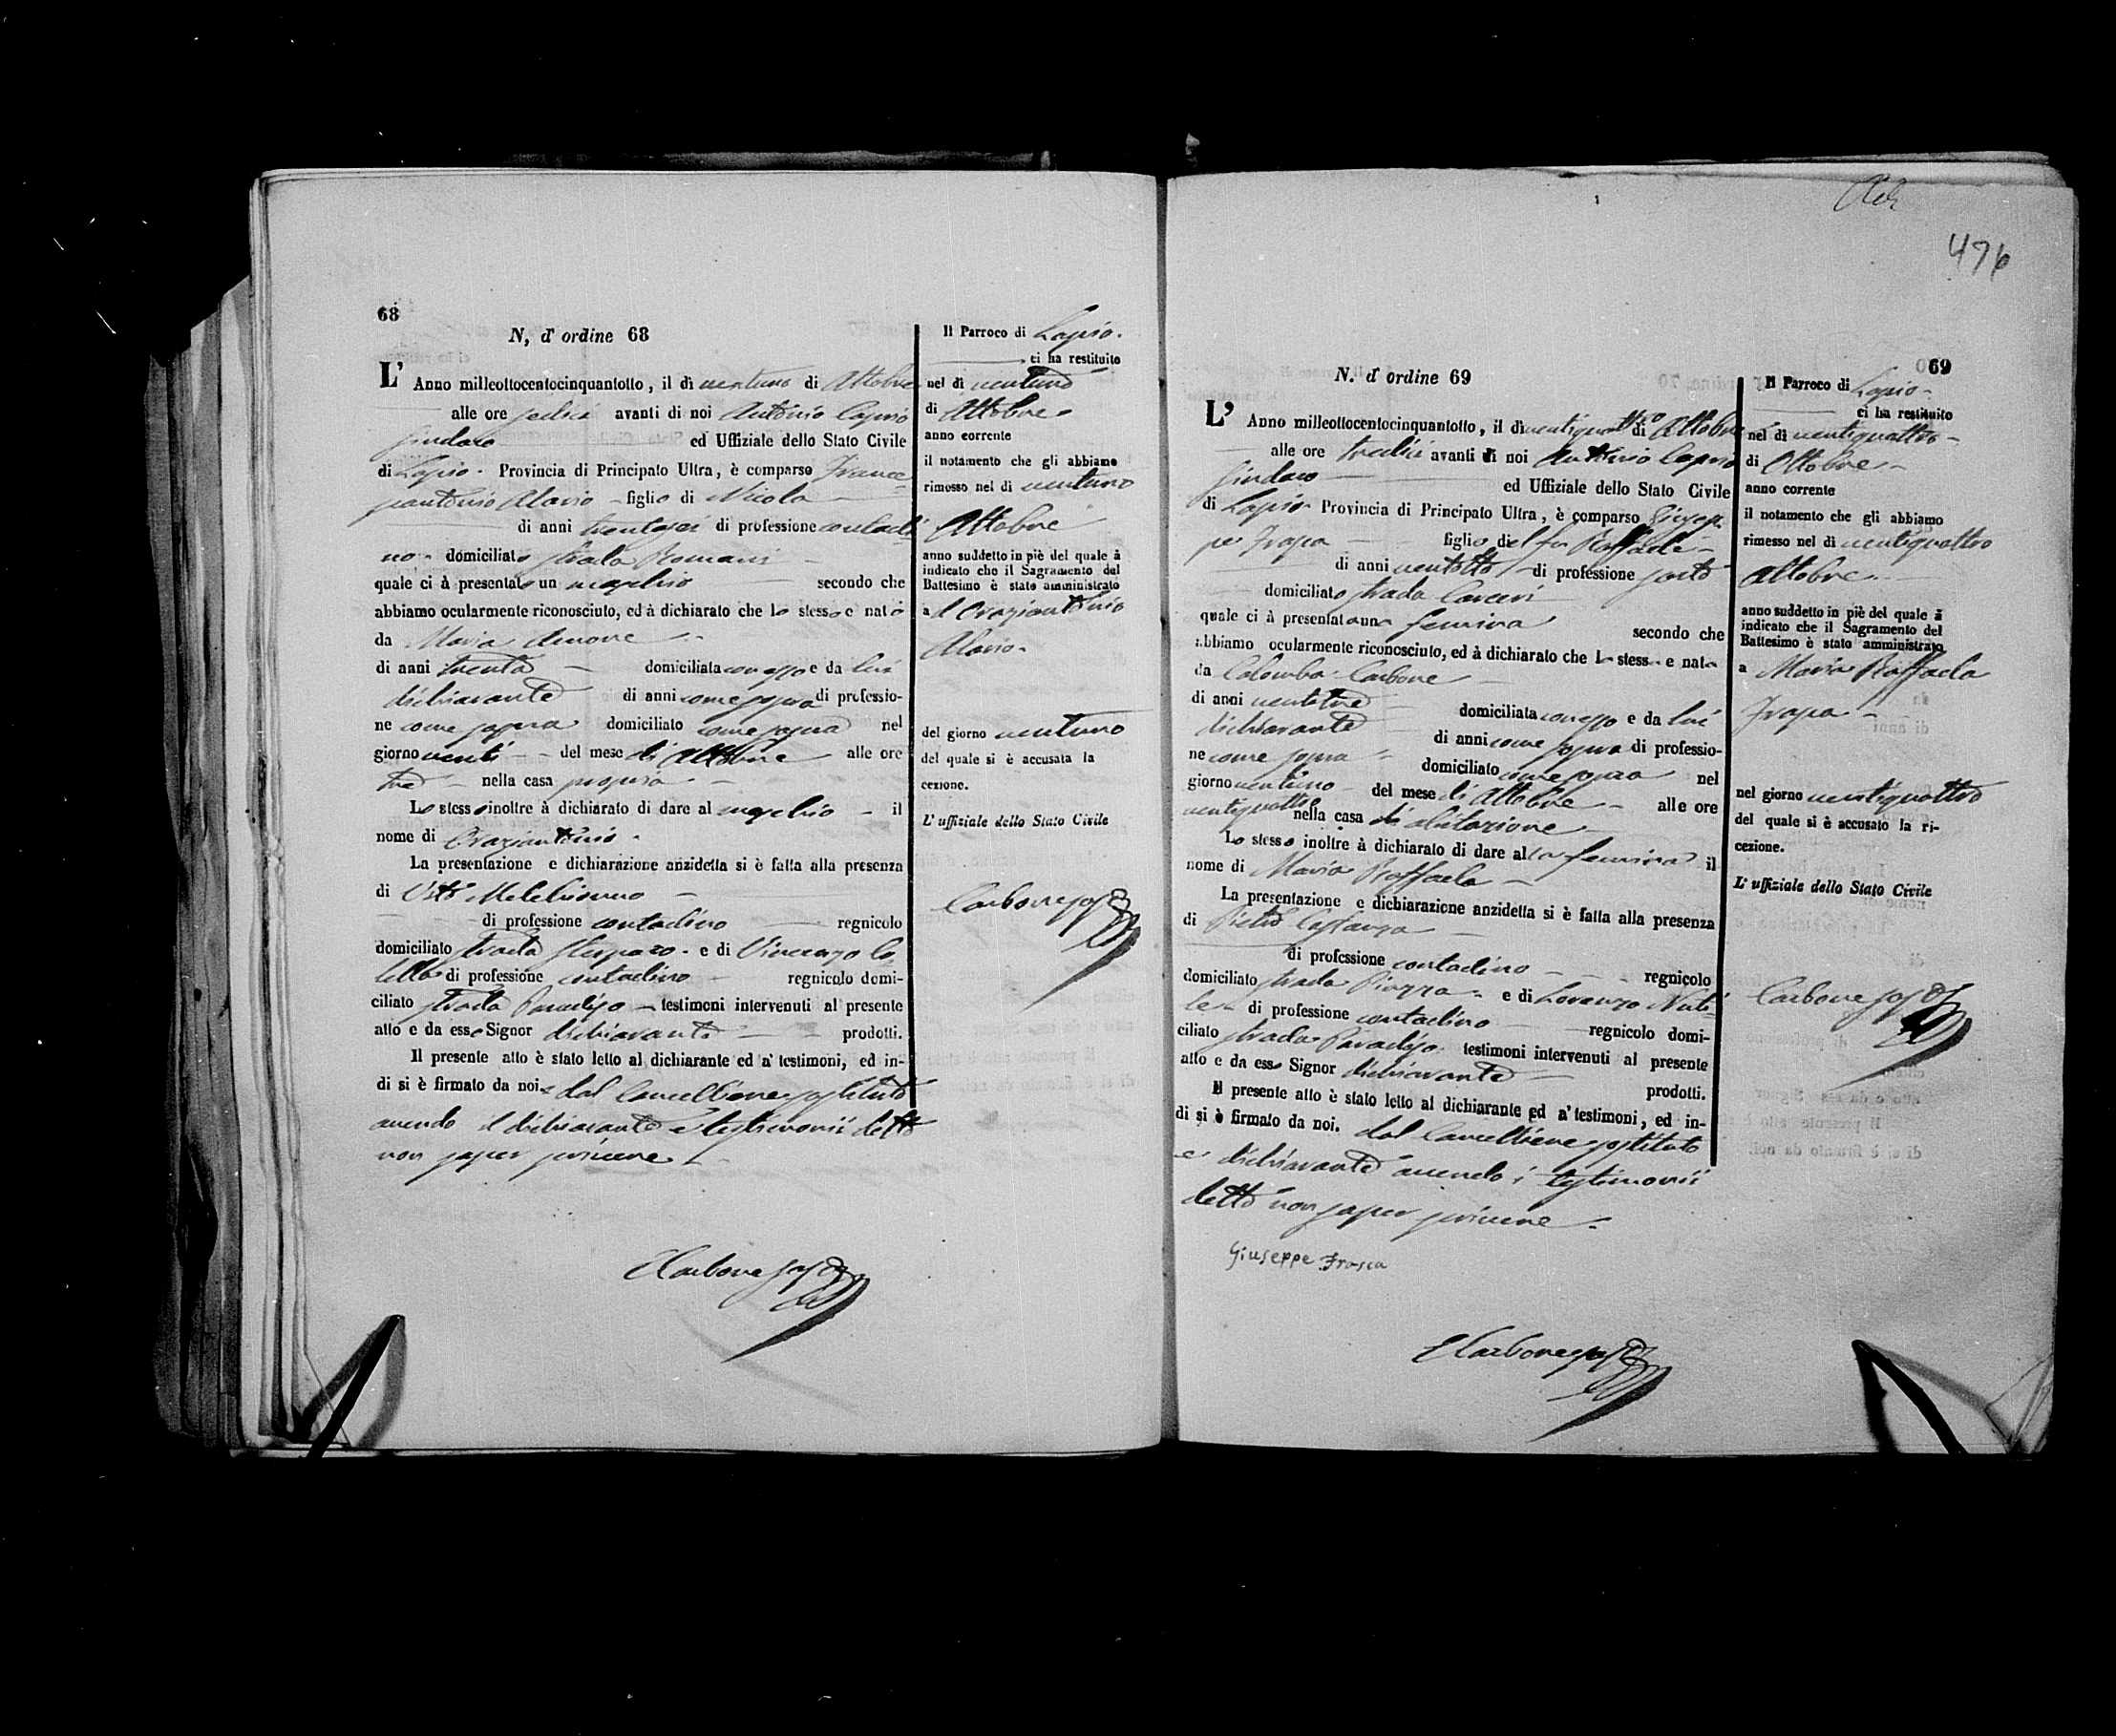 68
N, d' ordine 68
L' Anno milleottocentocinquantotto, il dì ventuno di Ottobre
alle ore sedici avanti di noi Antonio Caprio
Sindaco ed Uffiziale dello Stato Civile
di Lapio. Provincia di Principato Ultra, è comparso France
figlio di Nicola
di anni trentasei di professione contadi
no domiciliato strada Romani
quale ci à presentato un maschio secondo che
abbiamo ocularmente riconosciuto, ed à dichiarato che lo stesso e nato
da Maria
di anni trenta domiciliata con esso e da lui
dichiarante di anni come sopra di professio-
ne come sopra domiciliato come sopra nel
giorno venti del mese di Ottobre alle ore
tre nella casa propria
Lo stesso inoltre à dichiarato di dare al maschio il
nome di Oraziantonio
La presentazione e dichiarazione anzidetta si è fatta alla presenza
di Vito
di professione contadino regnicolo
domiciliato strada e di Vincenzo Co
lella di professione contadino regnicolo domi-
ciliato strada Paradiso testimoni intervenuti al presente
atto e da esso Signor dichiarante prodotti.
Il presente atto è stato letto al dichiarante ed a' testimoni, ed in-
di si è firmato da noi e dal Cancelliere sostituto
avendo il dichiarante e testimonii detto
non saper scrivere
Carbone sosto
Il Parroco di Lapio.
ci ha restituito
nel dì ventuno
di Ottobre
anno corrente
il notamento che gli abbiamo
rimesso nel dì ventuno
Ottobre
anno suddetto in piè del quale à
indicato che il Sagramento del
Battesimo è stato amministrato
a d Oraziantonio
del giorno ventuno
del quale si è accusata la
cezione.
L' uffiziale dello Stato Civile
Carbone sosto
476
69
N. d' ordine 69
L' Anno milleottocentocinquantotto, il dì ventiquattro di Ottobre
alle ore tredici avanti di noi Antonio Caprio
Sindaco ed Uffiziale dello Stato Civile
di Lapio Provincia di Principato Ultra, è comparso Giusep
pe Frasca figlio del fu Raffaele
di anni ventotto di professione sarto
domiciliato strada Carceri
quale ci à presentato una femina secondo che
abbiamo ocularmente riconosciuto, ed à dichiarato che la stessa e nata
da Colomba Carbone
di anni ventitre domiciliata con esso e da lui
dichiarante di anni come sopra di professio-
ne come sopra domiciliato come sopra nel
giorno ventuno del mese di Ottobre alle ore
ventiquattro nella casa di abitazione
Lo stesso inoltre à dichiarato di dare alla femina il
nome di Maria Raffaela
La presentazione e dichiarazione anzidetta si è fatta alla presenza
di Pietro Costanza
di professione contadino regnicolo
domiciliato strada Piazza e di Lorenzo
di professione contadino regnicolo domi-
ciliato strada Paradiso testimoni intervenuti al presente
atto e da esso Signor dichiarante prodotti.
Il presente atto è stato letto al dichiarante ed a' testimoni, ed in-
di si è firmato da noi. dal Cancelliere sostituto
e dichiarante avendo i testimonii
detto non saper scrivere
Giuseppe Frasca
Carbone sosto
Il Parroco di Lapio
ci ha restituito
nel dì ventiquattro
di Ottobre
anno corrente
il notamento che gli abbiamo
rimesso nel dì ventiquattro
Ottobre
anno suddetto in piè del quale à
indicato che il Sagramento del
Battesimo è stato amministrato
a Maria Raffaela
Frasca
nel giorno ventiquattro
del quale si è accusato la ri-
cezione.
L' uffiziale dello Stato Civile
Carbone sosto